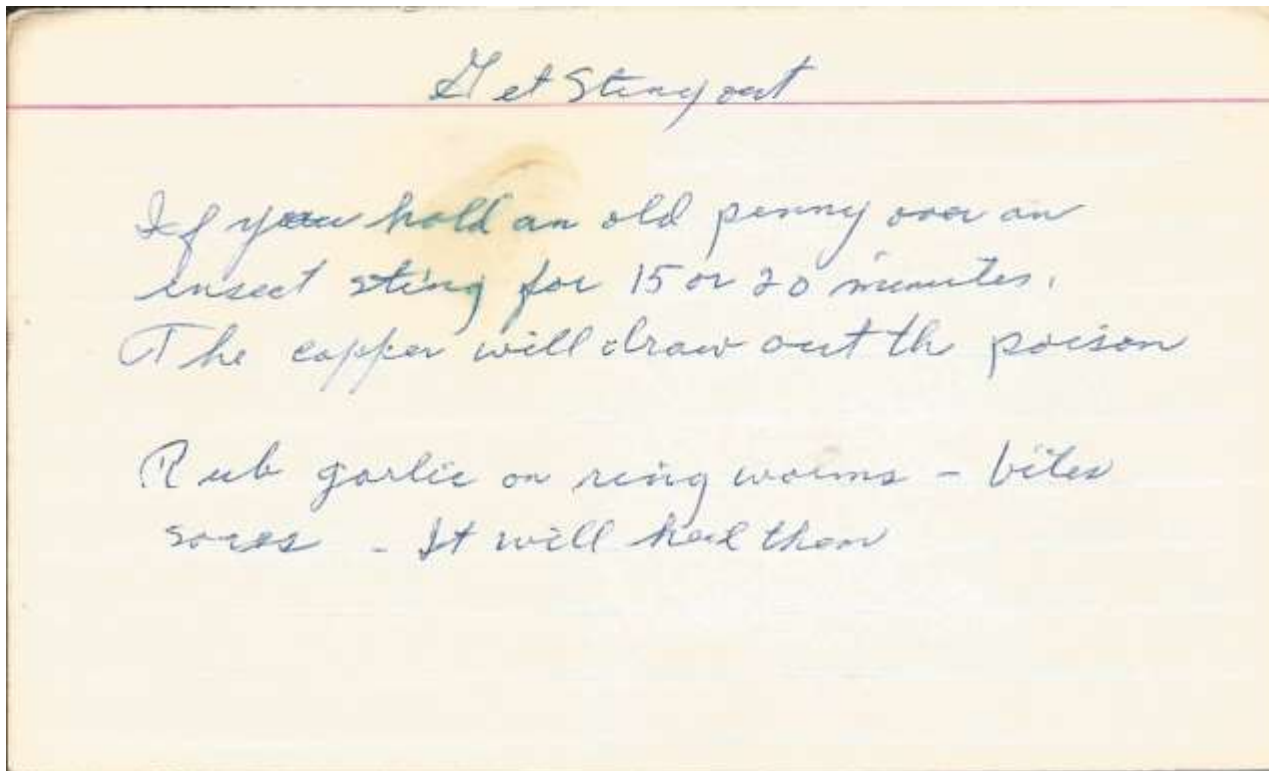 Get Sting out
If you hold an old penny over an
insect sting for 15 or 20 minutes.
The copper will draw out th poison
Rub garlic on ring worms - bites
sores - It will heal them